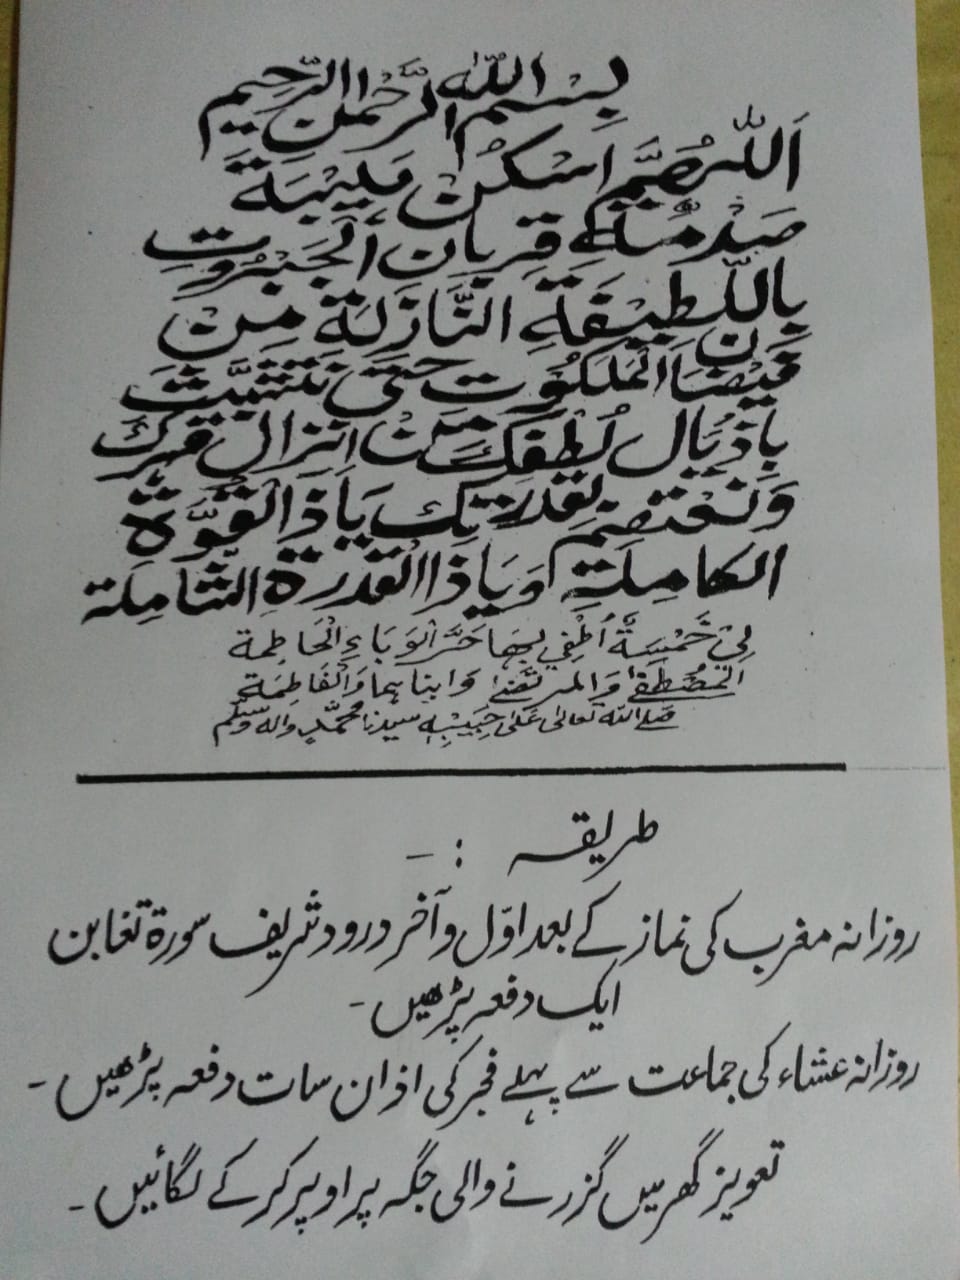 بِسْمِ اللّٰهِ الرَّحْمٰنِ الرَّحِيْمِ
اَللّٰهُمَّ اسْكُنْ هَيْبَةَ
صَدْمَةِ قِرْبَانِ الْجَبَرُوتِ
بِاللَّطِيْفَةِ النَّازِلَةِ مِنْ
فَيْضَانِ الْمَلَكُوْتِ حَتّٰى نَتَثَبَّتَ
بِاَذْيَالِ لُطْفِكَ مِنْ اَنْزَالِ قَهْرِكَ
وَنَعْتَصِمُ بِقُدْرَتِكَ يَاذَا الْقُوَّةِ
الكَامِلَةِ وَيَاذَا الْقُدْرَةِ الشَّامِلَة
لِيْ خَمْسَةٌ اُطْفِي بِهَا حَرَّ الْوَبَاءِ الْحَاطِمَة
اَلْمُصْطَفٰى وَالْمُرْتَضٰى وَابْنَاهُمَا وَالْفَاطِمَة
صلے اللہ تعالیٰ عَلٰى حَبِيْبِهٖ سيدنا مُحَمَّدٍ واٰلهٖ وسلّم
طریقہ :ـ
روزانہ مغرب کی نماز کے بعد اوّل و آخر درود شریف سورۃ تغابن
ایک دفعہ پڑھیں-
روزانہ عشاء کی جماعت سے پہلے فجر کی اذان سات دفعہ پڑھیں-
تعویز گھر میں گزرنے والی جگہ پر اوپر کر کے لگائیں-